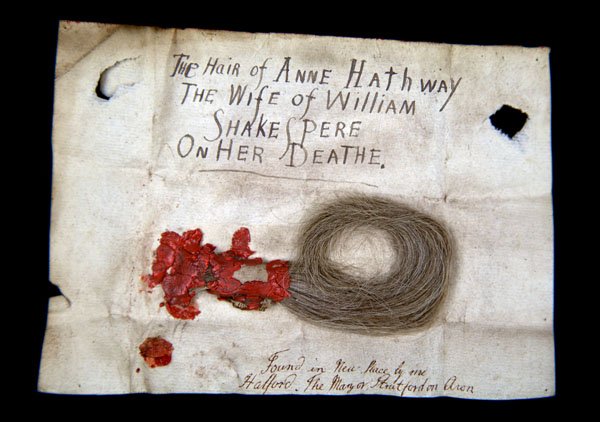 The Hair of ANNE HATHWAY
THE WIFE OF WILLIAM
SHAKESPERE
ON HER DEATHE.
Found in New Place by me
Halford. The Mayor, Stratford on Avon